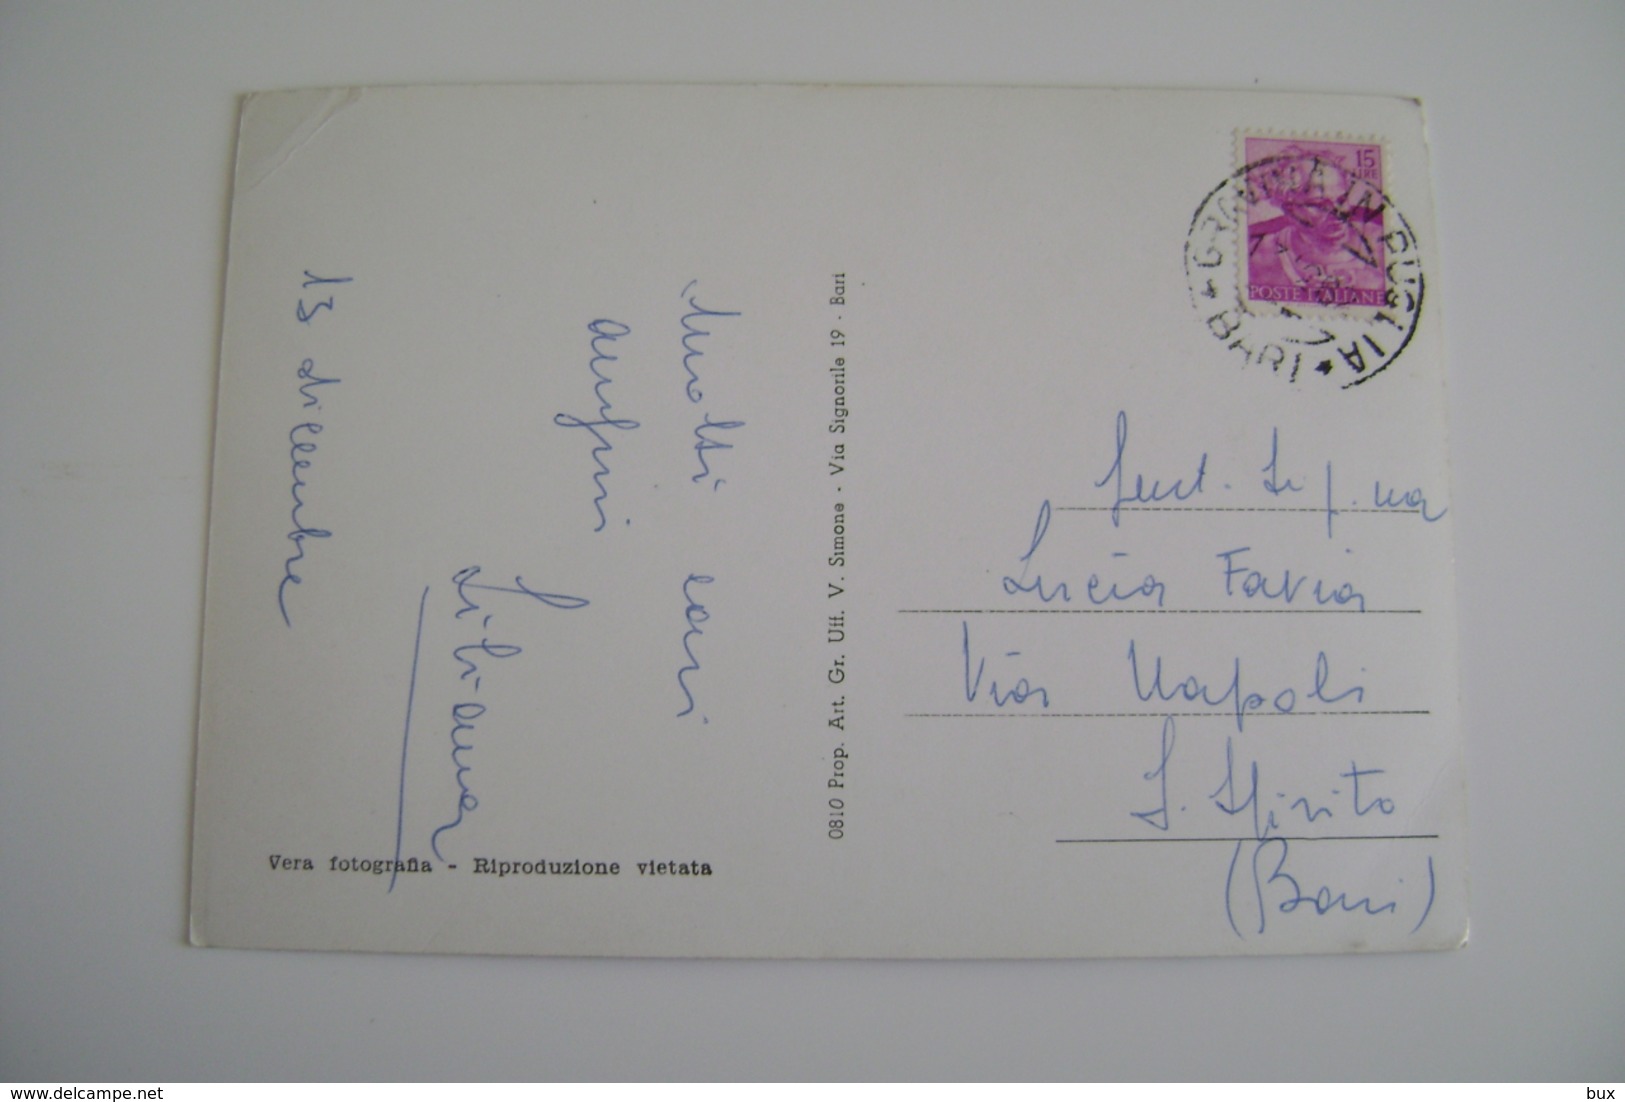 13 dicembre
Molti cari
auguri
Liliana
Vera fotografia - Riproduzione vietata
0810 Prop. Art. Gr. Uff. V. Simone - Via Signorile 19 - Bari
15
LIRE
POSTE ITALIANE
GRAVINA IN PUGLIA
* BARI *
Gent. Sig.na
Lucia Favia
Via Napoli
S. Spirito
(Bari)
delcampe.net
bux